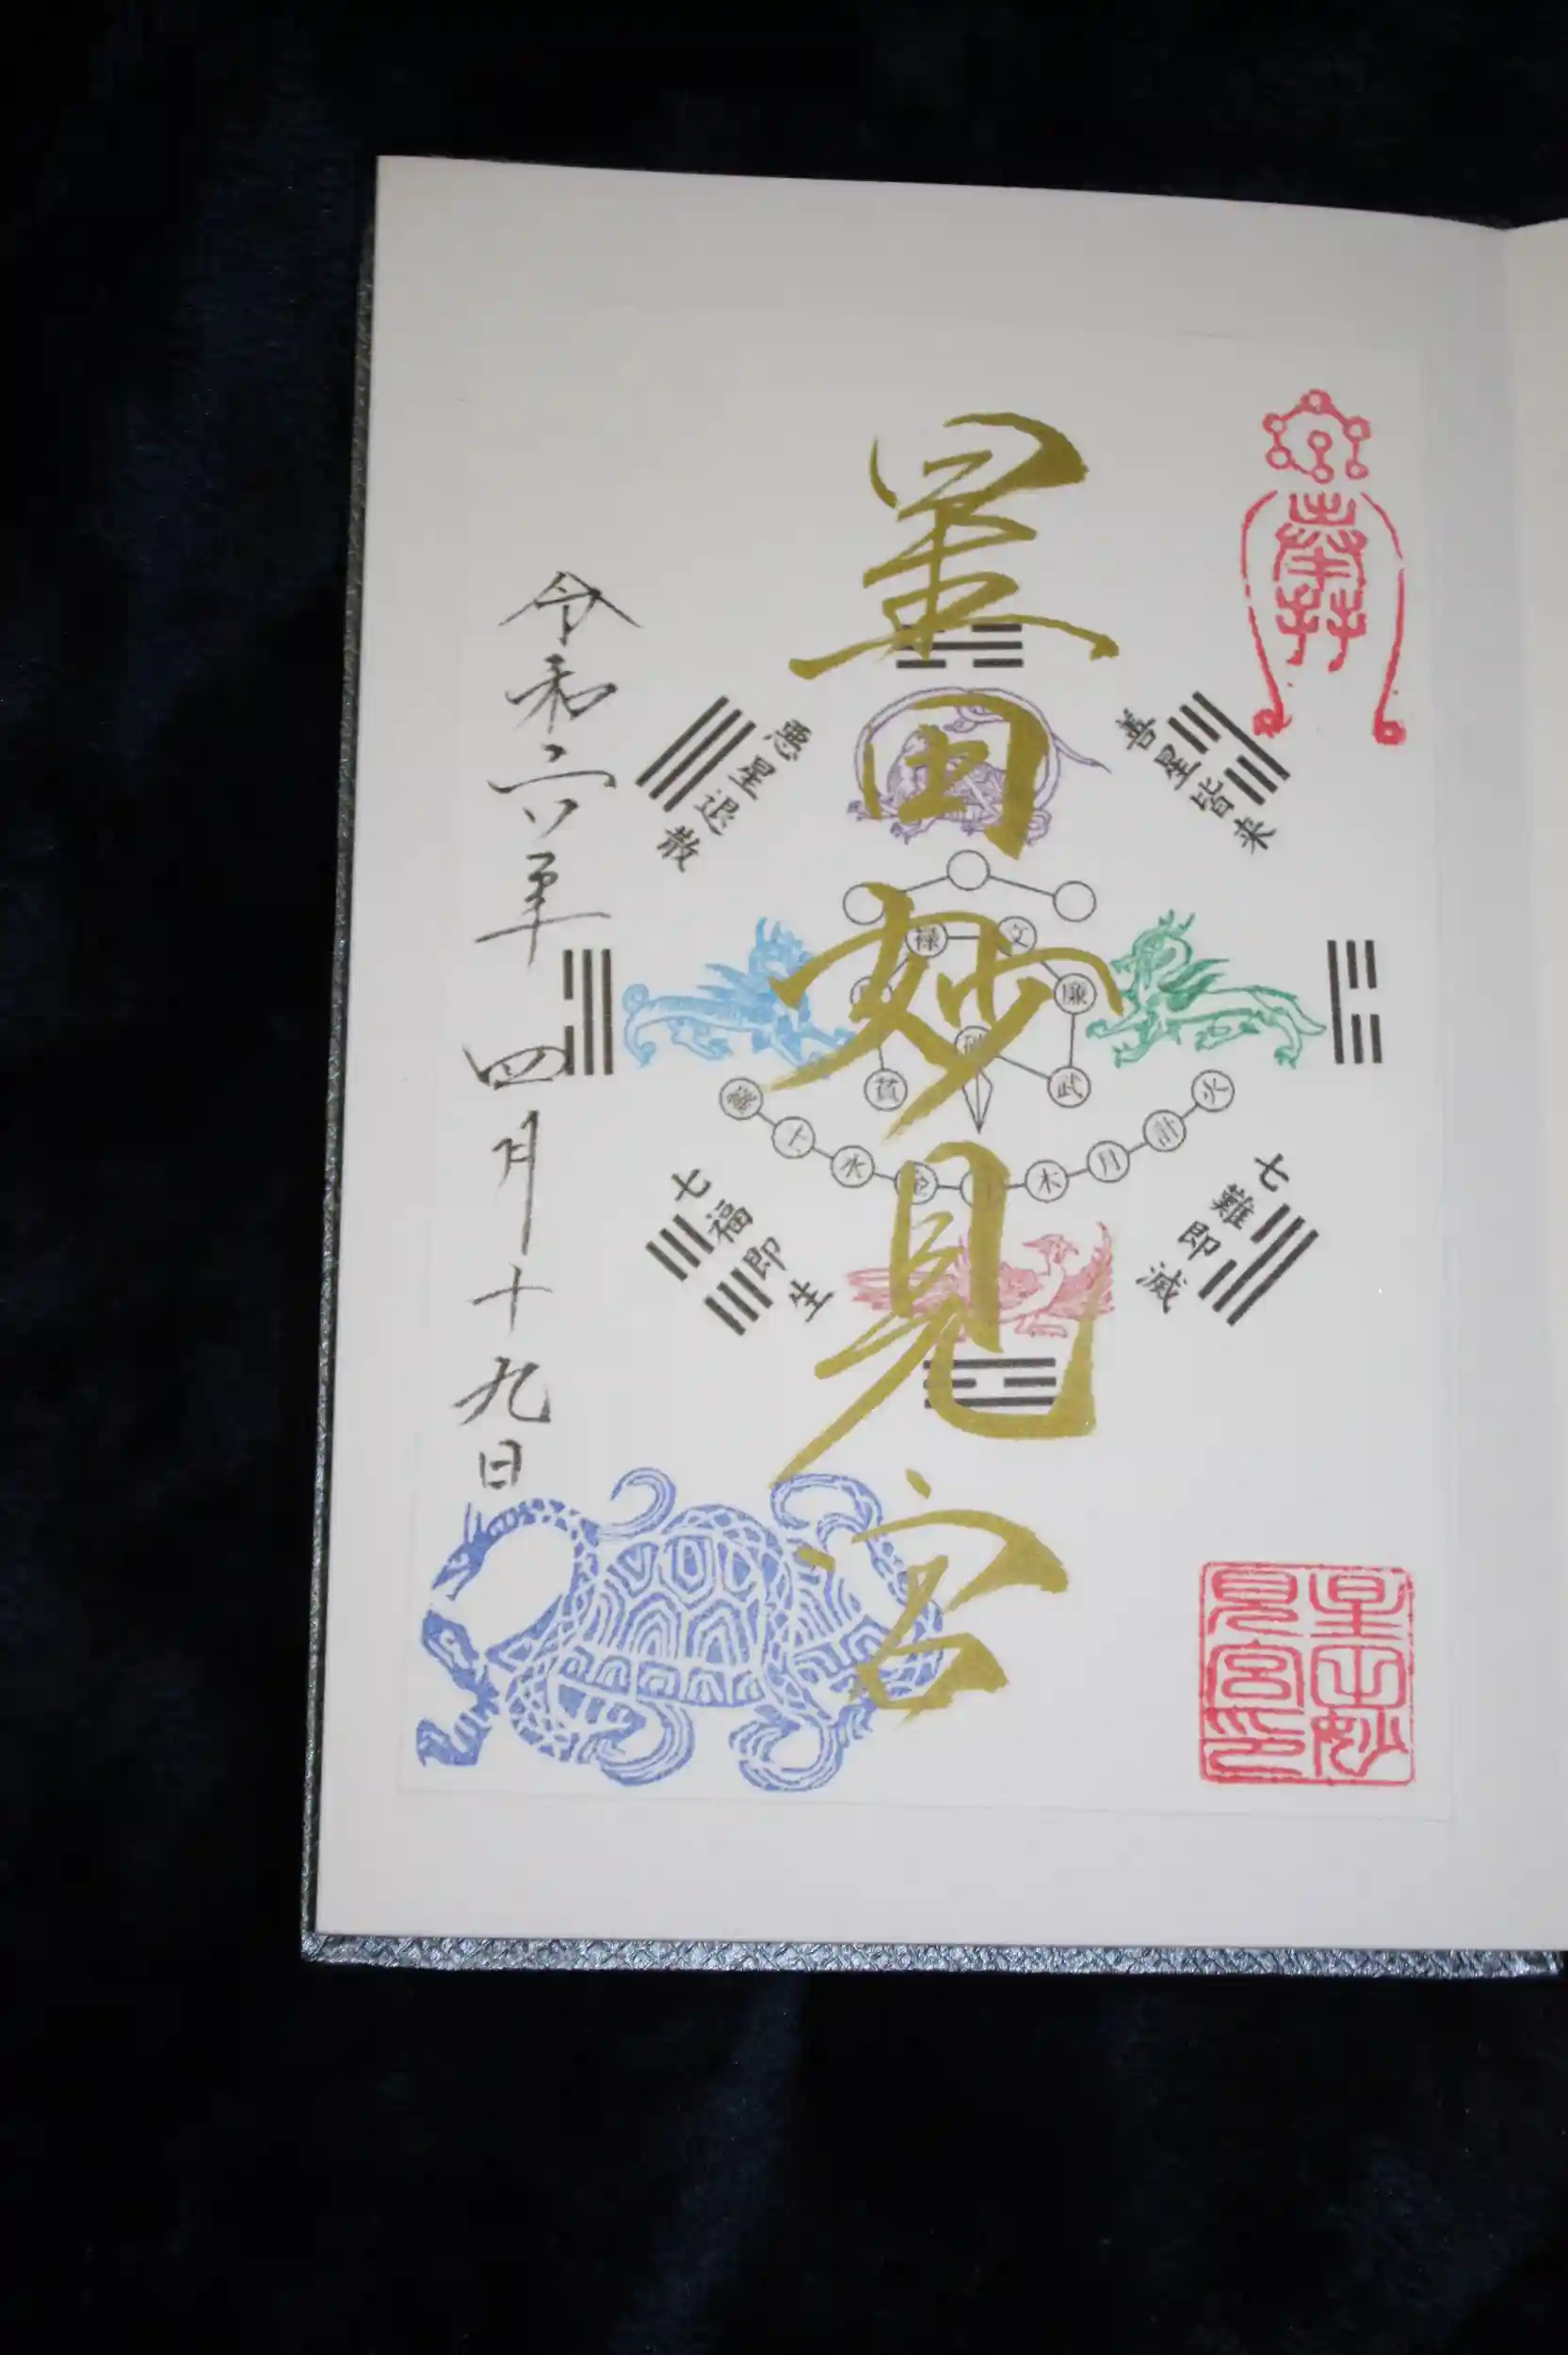 奉拝
善星皆来
七難即滅
星田妙見宮印
星田妙見宮
禄
文
廉
武
貪
羅
土
水
金
木
月
計
火
悪星退散
七福即生
令和六年四月十九日